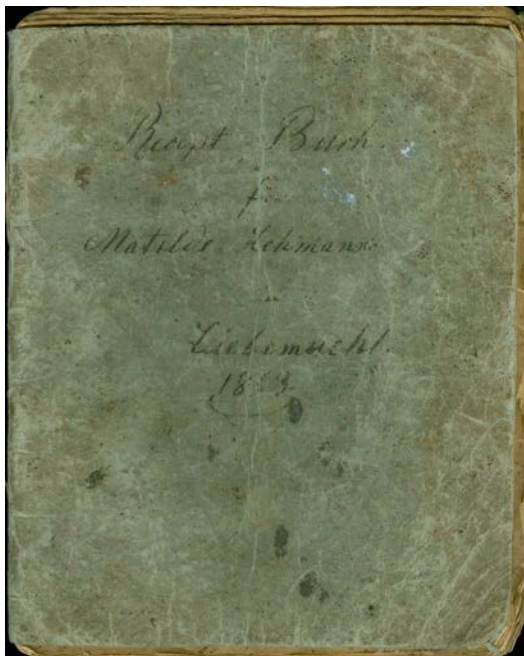 Recept Buch
für
Matilde Lehmann
in
Liebemuehl.
1883